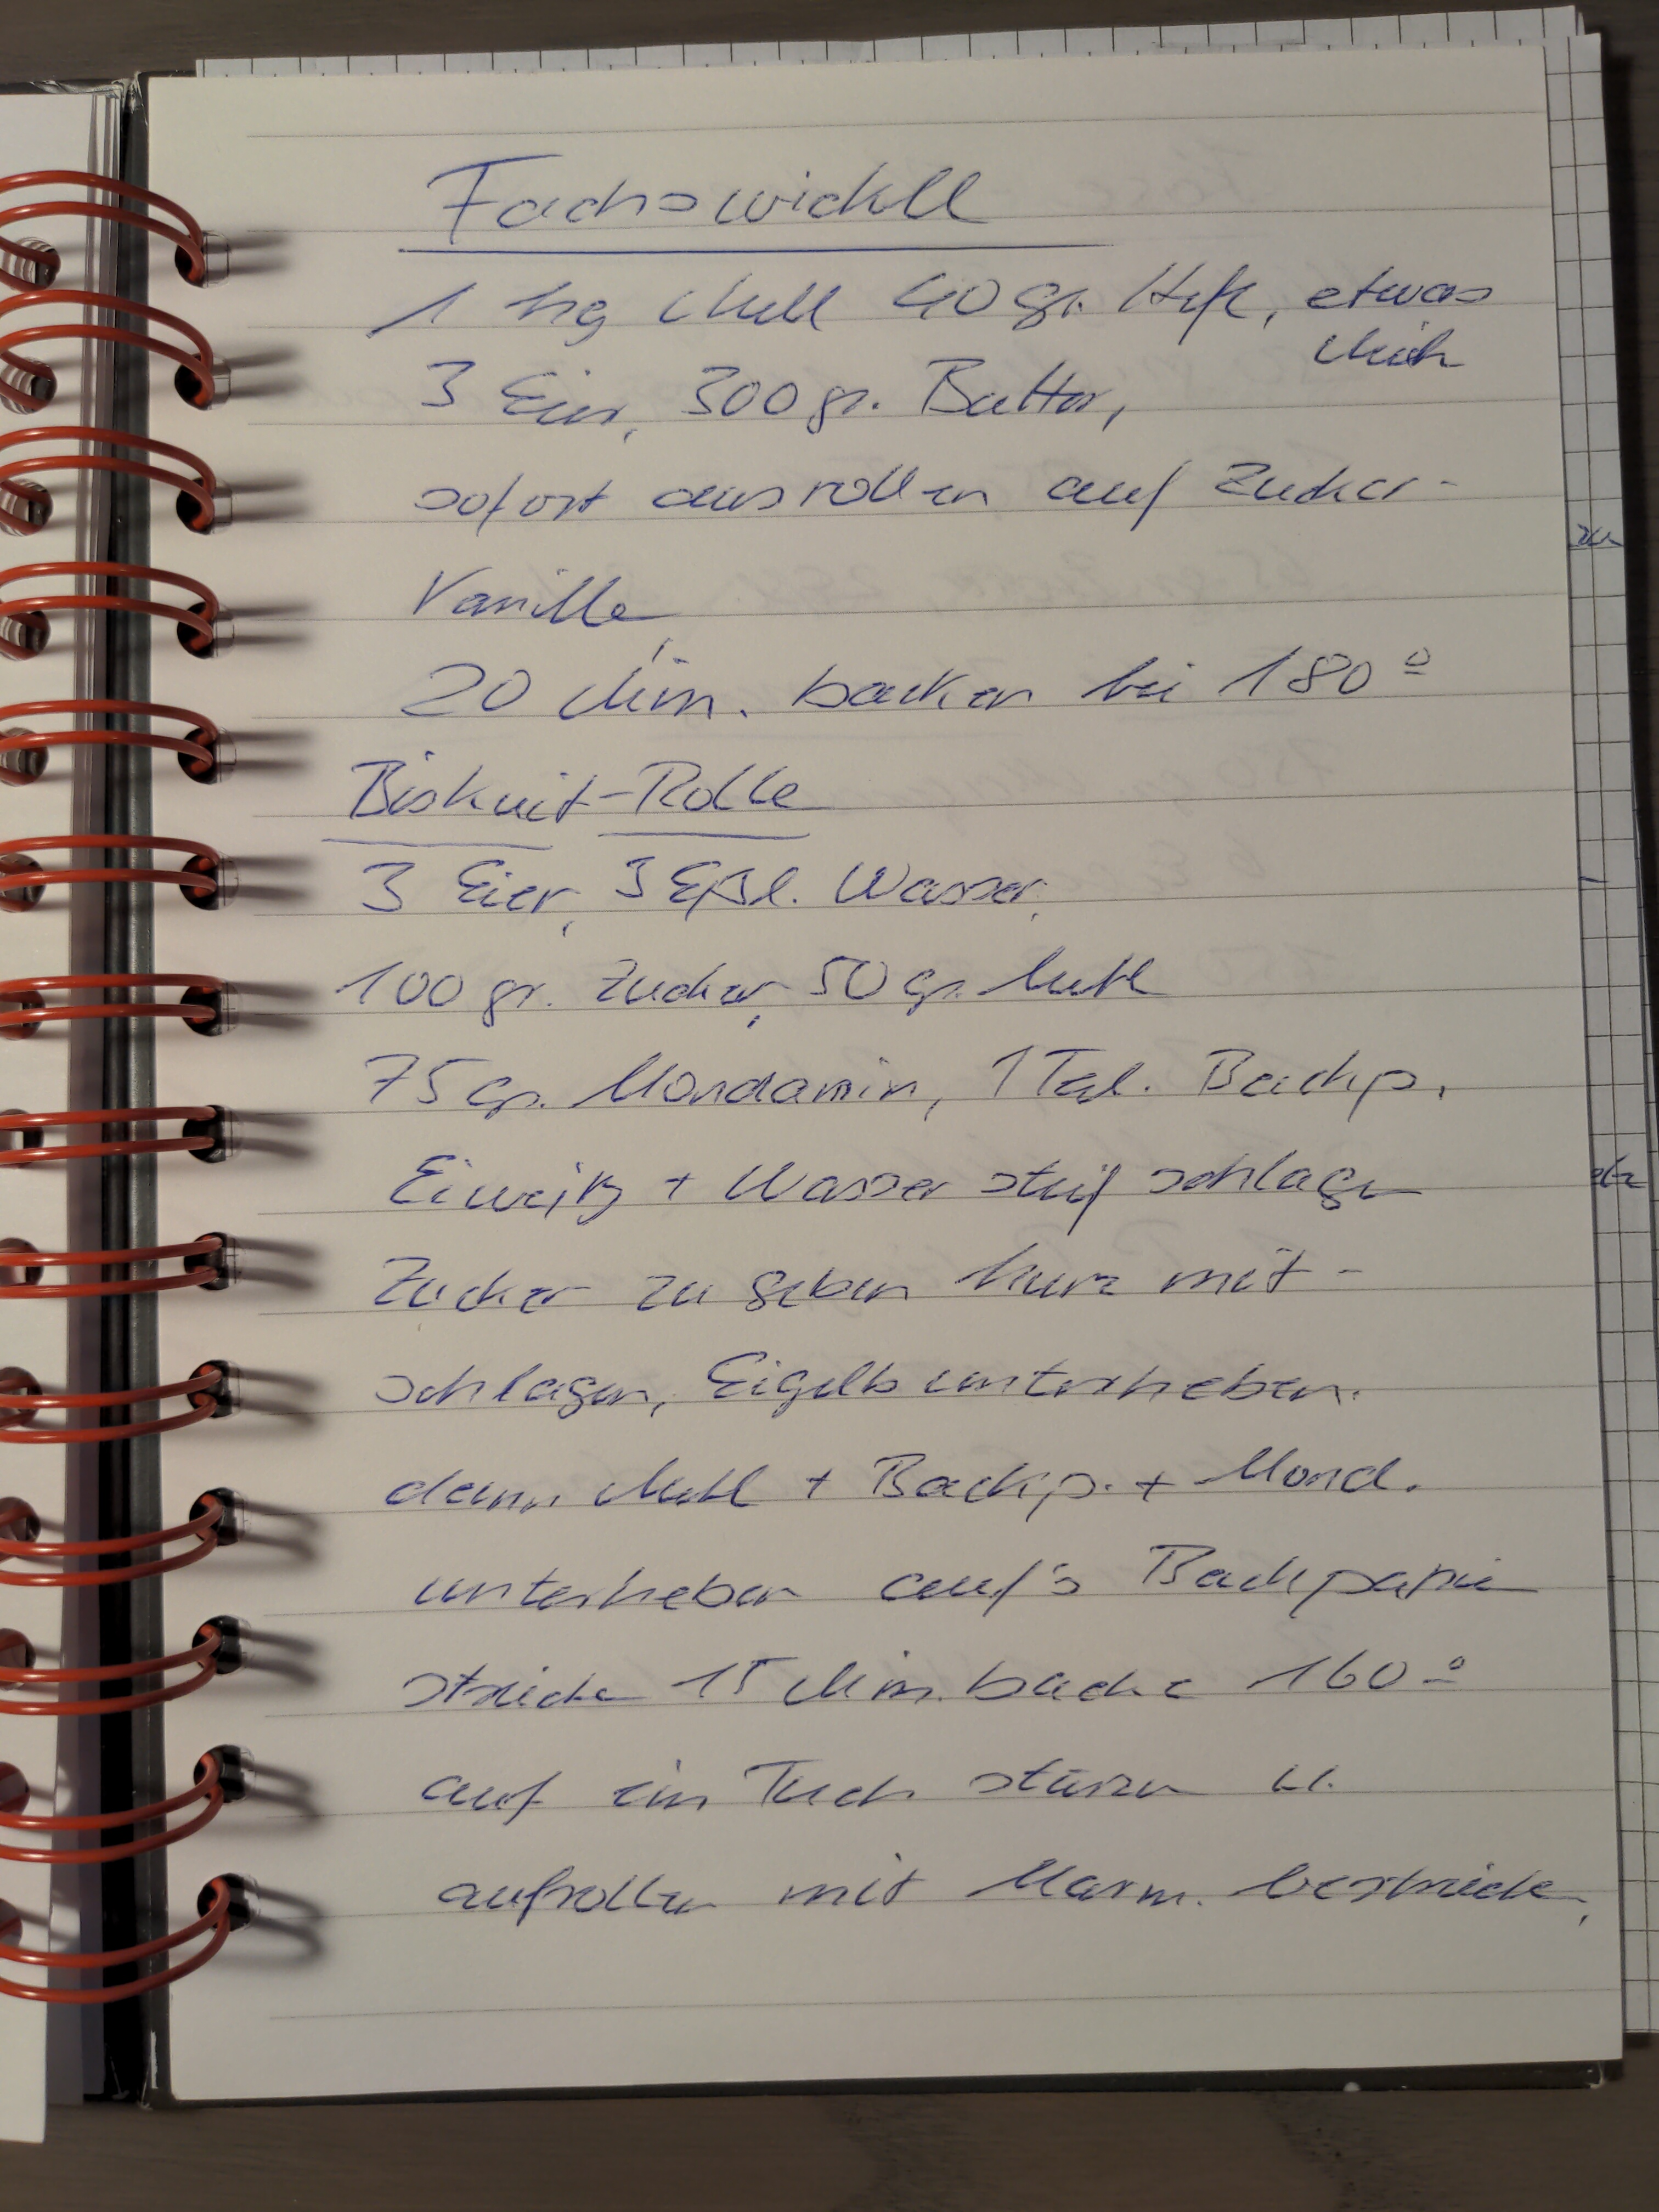 Fachswickll
1 kg Mehl 40 gr. Hefe, etwas
Milch
3 Eier, 300 gr. Butter,
sofort ausrollen auf Zucker-
Vanille,
20 Min. backen bei 180°
Biskuit-Rolle
3 Eier, 3 Eßl. Wasser,
100 gr. Zucker, 50 gr. Mehl
75 gr. Mondamin, 1 Teel. Backp.
Eiweiß + Wasser steif schlagen
Zucker zu geben kurz mit-
schlagen, Eigelb unterheben.
dann Mehl + Backp. + Mond.
unterheben auf's Backpapier
streiche 15 Min. backe 160°
auf ein Tuch stürzen u.
aufrollen mit Marm. bestreiche,